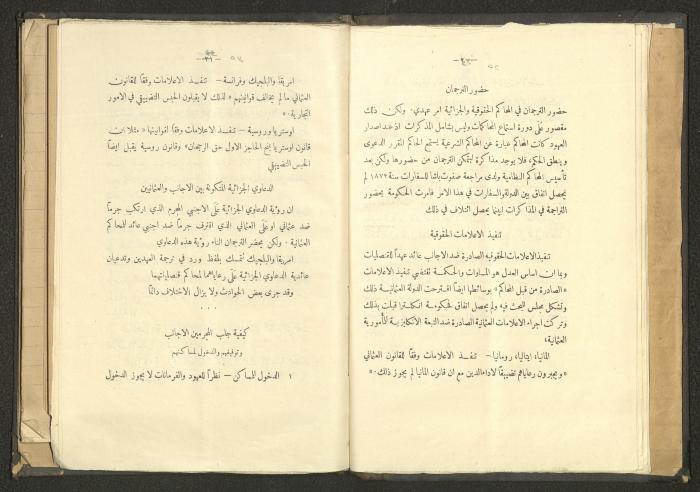 حضور الترجمان
حضور الترجمان في المحاكم الحقوقية والجزائية امر عهدي. ولكن ذلك
مقصور على دورة استماع المحاكمات وليس بشامل المذكرات اذ عند اصدار
العهود كانت المحاكم عبارة عن المحاكم الشرعية يستمع الحاكم المقرر الدعوى
وينطق الحكم، فلا يوجد مذاكرة ليتمكن الترجمان من حضورها ولكن بعد
تأسيس المحاكم النظامية ولدى مراجعة صفوت باشا للسفارات سنة ١٨٧٢ لم
يحصل اتفاق بين الدولة والسفارات في هذا الامر فأمرت الحكومة بحضور
التراجمة في المذاكرات ريثما يحصل ائتلاف في ذلك
تنفيذ الاعلامات الحقوقية
تنفيذ الاعلامات الحقوقيه الصادرة ضد الاجانب عائد عهداً للقنصليات
وبما ان اساس العدل هو المساوات والحكمة تقتضي تنفيذ الاعلامات
«الصادرة من قبل المحاكم» بوسائطها ايضاً اقترحت الدولة العثمانية ذلك
وتشكل مجلس للبحث فيه ولم يحصل اتفاق فحكومة انكلترا قبلت بذلك
وتركت اجراء الاعلامات العثمانية الصادرة ضد التبعة الانكليزية للمأمورية
العثمانية،
المانيا، ايتاليا، رومانيا – تنفيذ الاعلامات وفقاً للقانون العثماني
«ويجبرون رعاياهم تضييقاً لاداء الدين مع ان قانون المانيا لم يجوز ذلك.»
امريقا والبلجيك وفرانسة – تنفيذ الاعلامات وفقاً للقانون
العثماني ما لم يخالف قوانينهم «لذلك لا يقبلون الحبس التضييقي في الامور
التجارية.»
اوستريا وروسية – تنفيذ الاعلامات وفقاً لقوانينها «مثلا ان
قانون اوستريا يمنح الحاجز الاول حق الرجحان» وقانون روسية يقبل ايضاً
الحبس التضييقي
الدعاوي الجزائية المتكونة بين الاجانب والعثمانيين
ان رؤية الدعاوي الجزائية على الاجنبي المجرم الذي ارتكب جرماً
ضد عثماني او على العثماني الذي اقترف جرماً ضد اجنبي عائد للمحاكم
العثمانية . ولكن يحضر الترجمان اثناء رؤية هذه الدعاوي
امريقا والبلجيك تتمسك بلفظ ورد في ترجمة العهدين وتدعيان
عائدية الدعاوي الجزائية على رعاياهما لمحاكم قنصلياتيهما
وقد جرى بعض الحوادث ولا يزال الاختلاف دائماً
. . .
كيفية جلب المجرمين الاجانب
وتوقيفهم والدخول لمساكنهم
١ الدخول للمساكن – نظراً للعهود والفرمانات لا يجوز الدخول